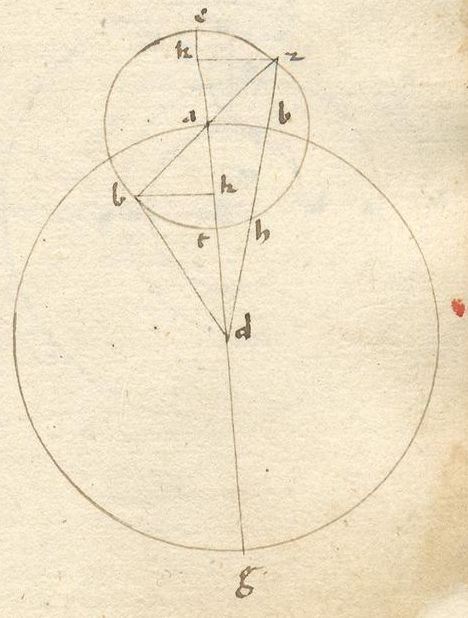 e
k z
a b
b k
t h
d
g